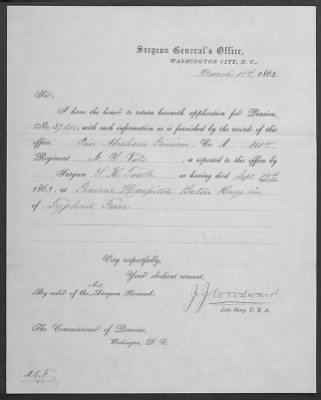 Surgeon General's Office,
WASHINGTON CITY, D. C.,
March 11th, 1864.
Sir:
I have the honor to return herewith application for Pension,
No. with such information as is furnished by the records of this
office. Priv Abraham Co. A
Regiment N. Y. Vols is reported to this office by
Surgeon S. K. Towle as having died Sept 19th
1863, at General Hospital Baton Rouge La
of Typhoid Fever
Very respectfully,
Your obedient servant,
By order of the Surgeon General:
J J Woodward
Ass. Surg. U. S. A.
The Commissioner of Pensions,
Washington, D. C.